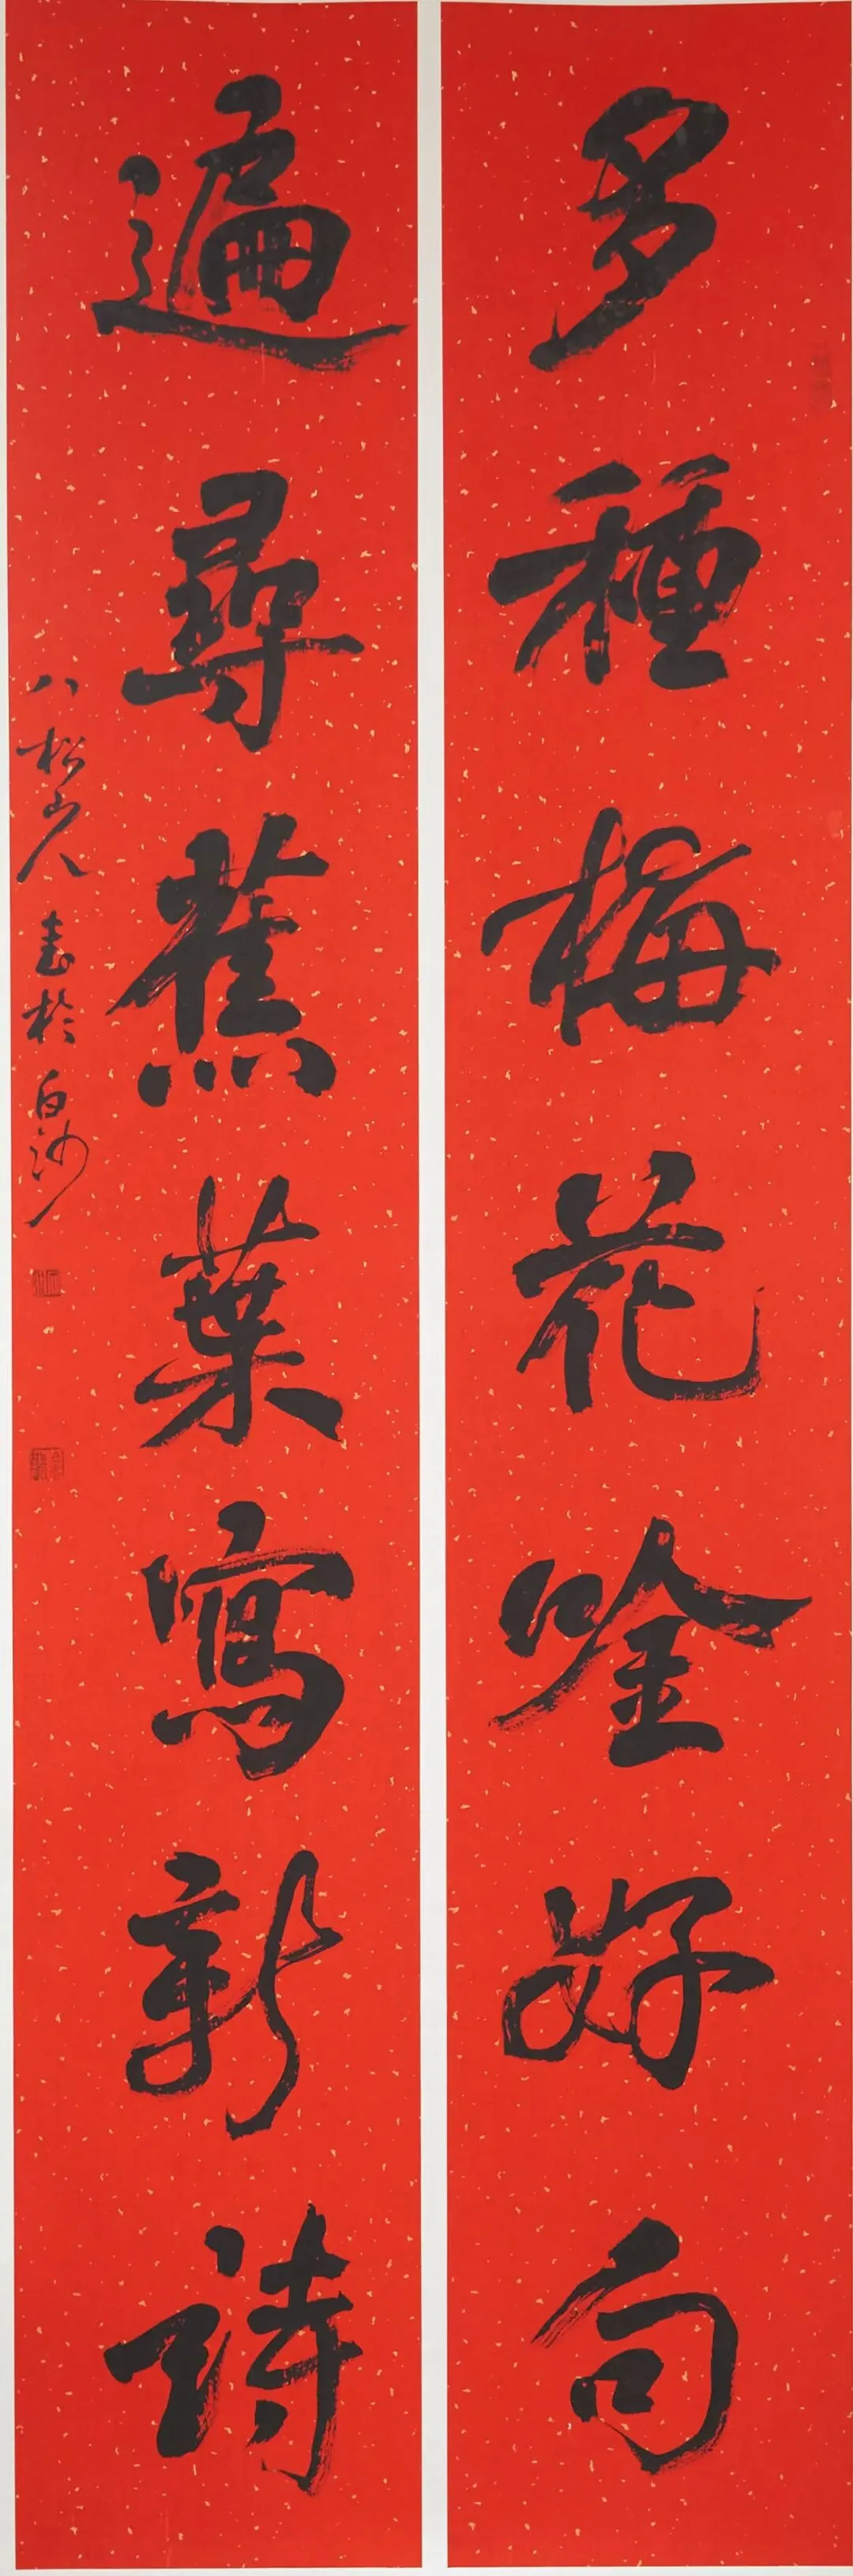 多種梅花唫好句
遍尋蕉葉寫新詩
八松山人書於白沙